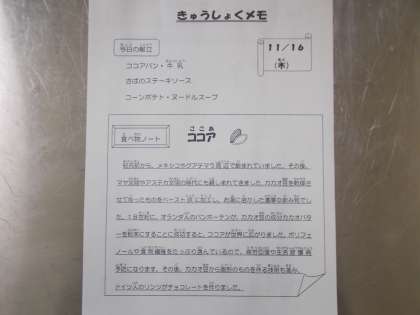 きゅうしょくメモ
今日の献立
11/16
(木)
ココアパン・牛乳
さばのステーキソース
コーンポテト・ヌードルスープ
食べ物ノート
ここあ
ココア
紀元前から、メキシコやグアテマラ周辺で飲まれていました。その後、
マヤ文明やアステカ文明の時代にも親しまれてきました。カカオ豆を乾燥さ
せて炒ったものをペースト状に加工し、お湯に溶かした濃厚な飲み物でし
た。19世紀に、オランダ人のバンホーテンが、カカオ豆の成分カカオバタ
ーを粉末にすることに成功すると、ココアが世界に広がりました。ポリフェ
ノールや食物繊維をたっぷり含んでいるので、疲労回復や生活習慣病
予防になります。その後、カカオ豆から固形のものを作る技術も進み、
ドイツ人のリンツがチョコレートを作りました。